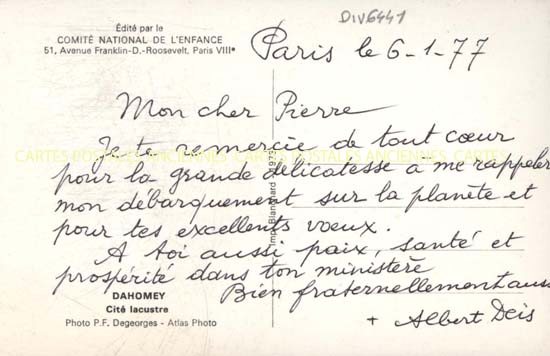 DIV6441
Édité par le
COMITÉ NATIONAL DE L'ENFANCE
51, Avenue Franklin-D.-Roosevelt, Paris VIIIe
Paris le 6-1-77
Mon cher Pierre
Je te remercie de tout cœur
CARTES POSTALES ANCIENNES CARTES POSTALES ANCIENNES CARTES
pour la grande délicatesse à me rappeler
mon débarquement sur la planète et
pour tes excellents vœux.
A toi aussi paix, santé et
prospérité dans ton ministère
Bien fraternellement auss
+ Albert Deis
Imp. Blanchard 1973
DAHOMEY
Cité lacustre
Photo P.F. Degeorges - Atlas Photo